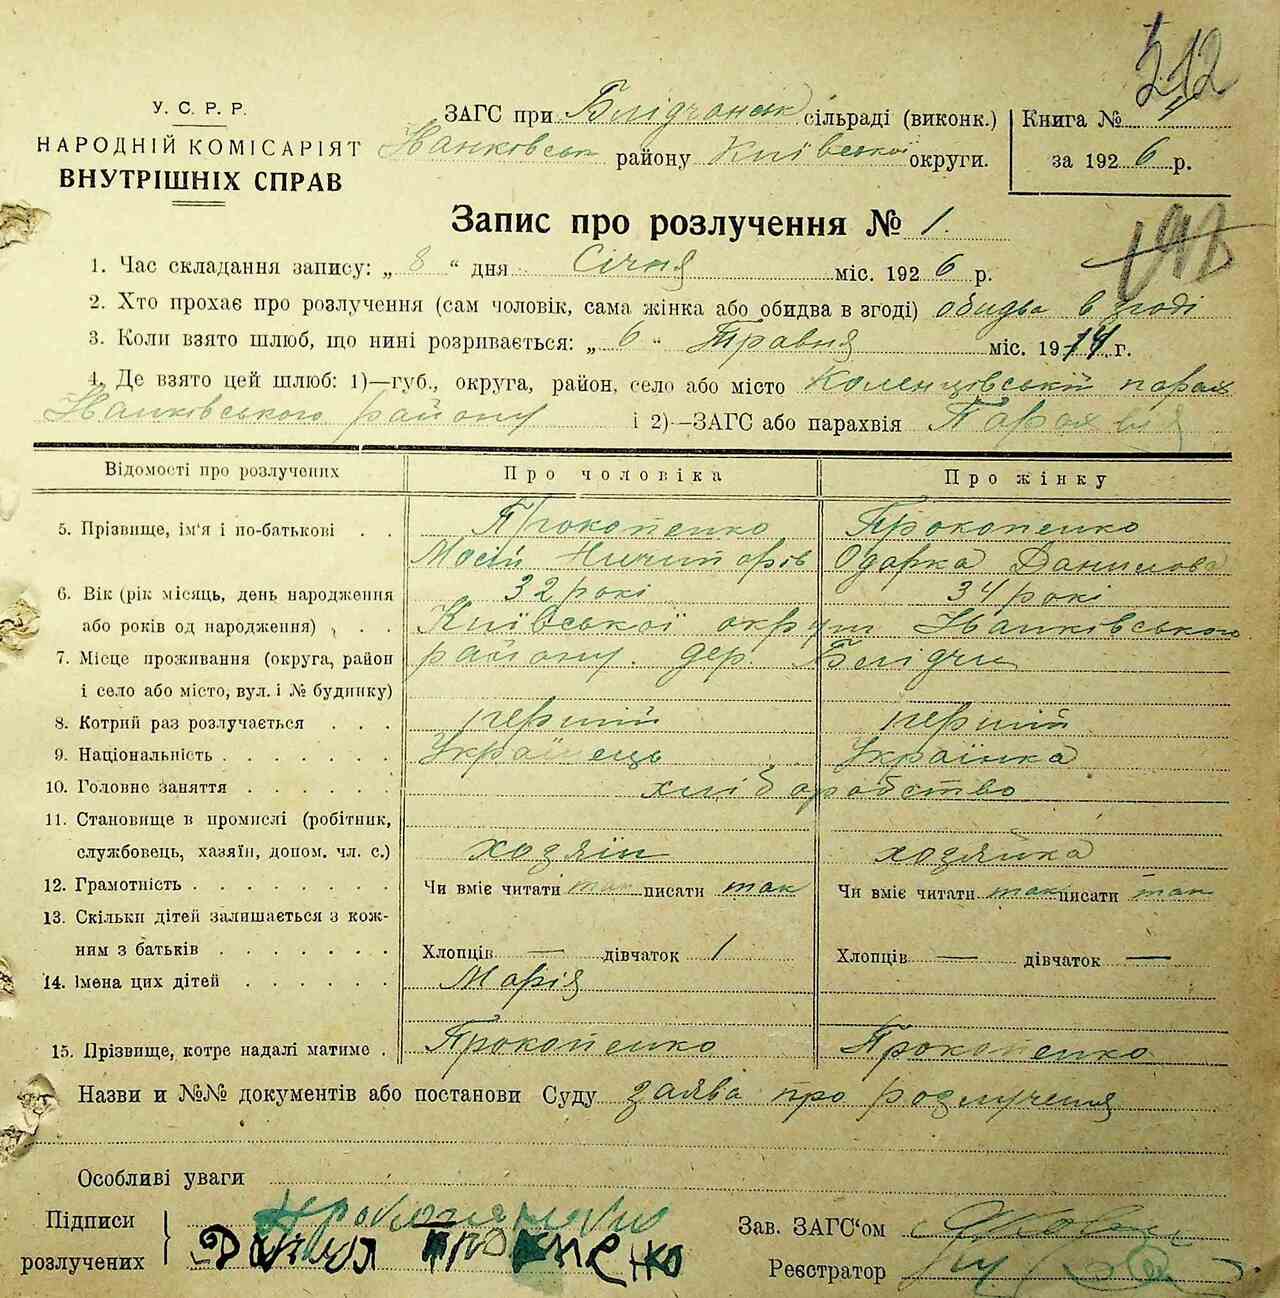 512
У. С. Р. Р.
НАРОДНІЙ КОМІСАРІЯТ
ВНУТРІШНІХ СПРАВ
ЗАГС при Блідчанськ сільраді (виконк.)
Іванковськ району Київської округи.
Книга №
за 1926 р.
Запис про розлучення № 1.
1. Час складання запису: „ 8 “ дня Січня міс. 1926 р.
2. Хто прохає про розлучення (сам чоловік, сама жінка або обидва в згоді) обидва в згоді
3. Коли взято шлюб, що нині розривається: „ 6 “ Травня міс. 1914 г.
4. Де взято цей шлюб: 1)—губ., округа, район, село або місто Коленцівській парах
Іванківського району і 2)—ЗАГС або парахвія Парахвія
Відомості про розлучених Про чоловіка Про жінку
5. Прізвище, ім'я і по-батькові . . Прокопенко Прокопенко
Мосій Ничипорів Одарка Данилова
6. Вік (рік місяць, день народження 32 рокі 34 рокі
або років од народження) . . . Київської округи Іванківського
7. Місце проживання (округа, район району. дер. Блідчи
і село або місто, вул. і № будинку)
8. Котрий раз розлучається . . . перший перший
9. Національність . . . . . . . Українець Українка
10. Головне заняття . . . . . . хліборобство
11. Становище в промислі (робітник,
службовець, хазяїн, допом. чл. с.) хозяїн хозяйка
12. Грамотність . . . . . . . . Чи вміє читати так писати так Чи вміє читати так писати так
13. Скільки дітей залишається з кож-
ним з батьків . . . . . . . Хлопців — дівчаток 1 Хлопців — дівчаток —
14. Імена цих дітей . . . . . . Марія
15. Прізвище, котре надалі матиме . Прокопенко Прокопенко
Назви и №№ документів або постанови Суду заява про розлучення
Особливі уваги
Підписи
розлучених
Зав. ЗАГС'ом
Реєстратор